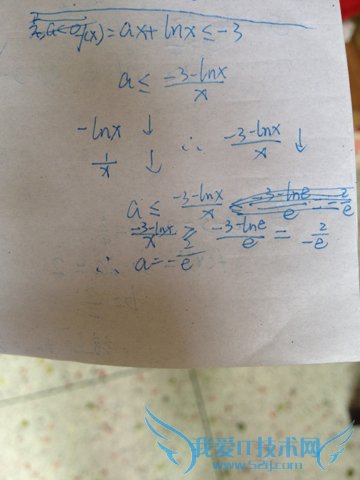 a<0 f(x) = ax + lnx ≤ -3
a ≤ (-3-lnx)/x
-lnx ↓
1/x ↓ ∴ (-3-lnx)/x ↓
a ≤ (-3-lnx)/x
(-3-lnx)/x ≥ (-3-lne)/e = 2/-e
∴ a = -2/e
我爱IT技术网
www.52ij.com